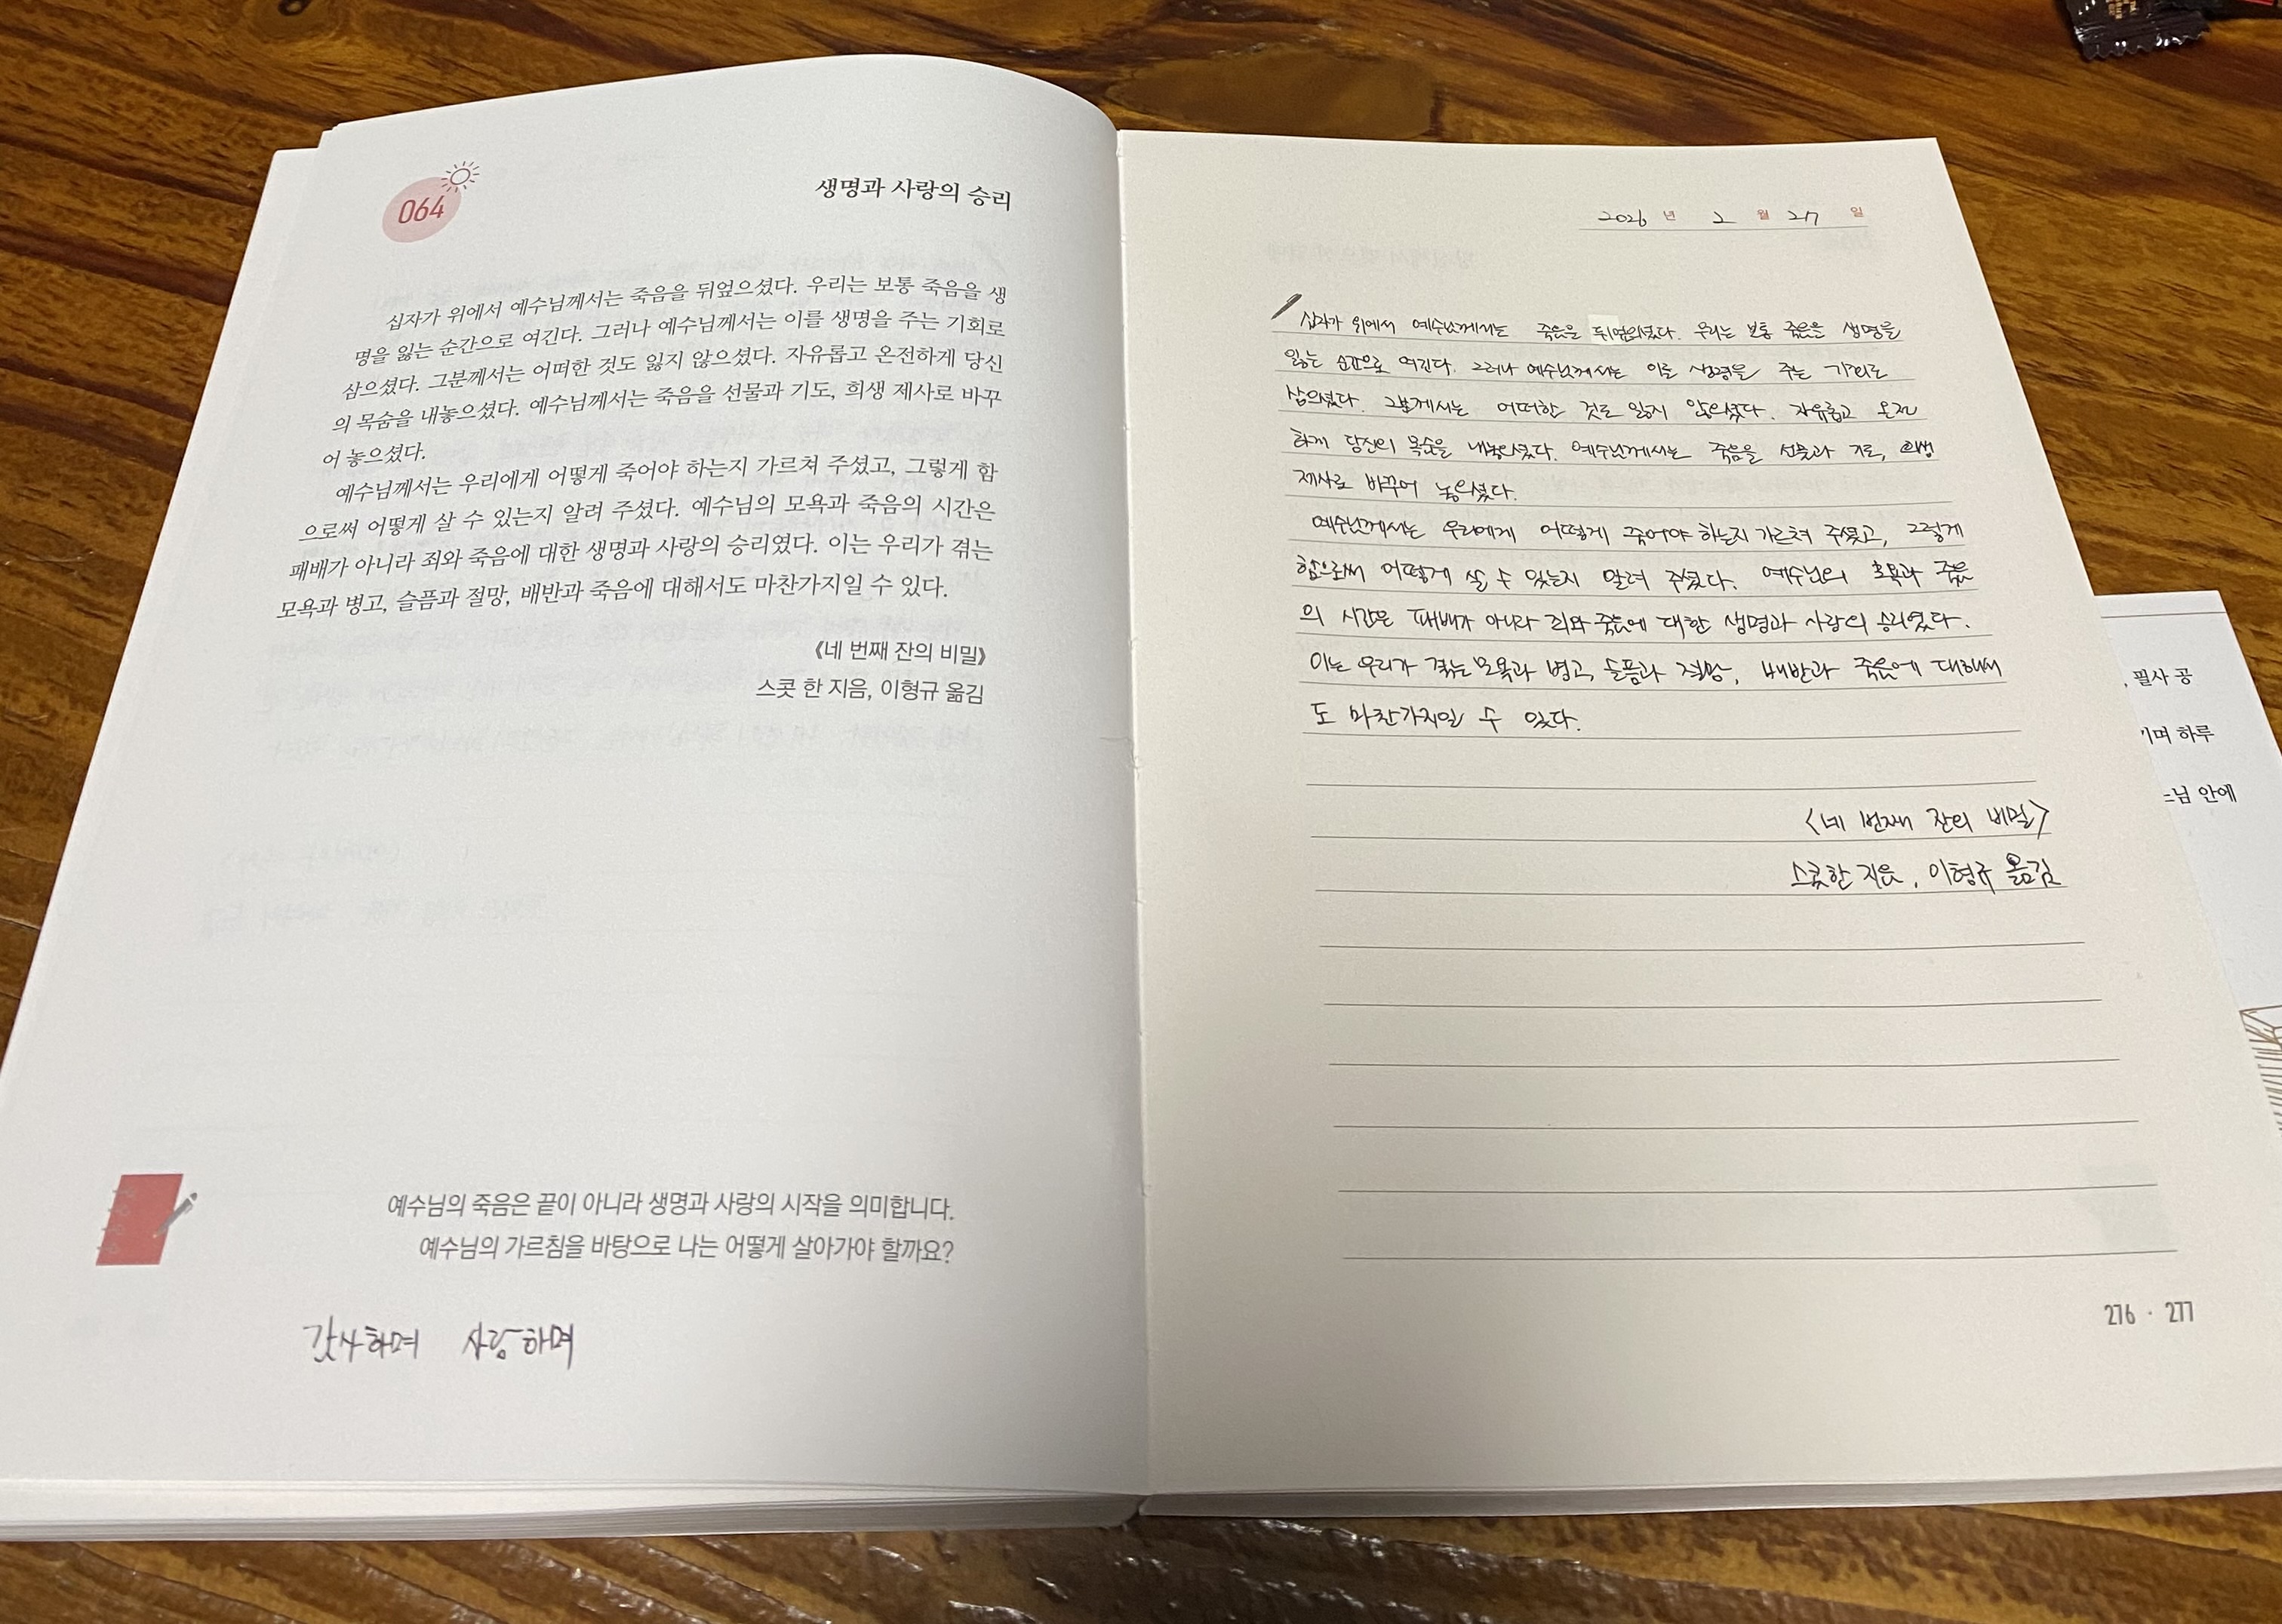 064
생명과 사랑의 승리
십자가 위에서 예수님께서는 죽음을 뒤엎으셨다. 우리는 보통 죽음을 생
명을 잃는 순간으로 여긴다. 그러나 예수님께서는 이를 생명을 주는 기회로
삼으셨다. 그분께서는 어떠한 것도 잃지 않으셨다. 자유롭고 온전하게 당신
의 목숨을 내놓으셨다. 예수님께서는 죽음을 선물과 기도, 희생 제사로 바꾸
어 놓으셨다.
예수님께서는 우리에게 어떻게 죽어야 하는지 가르쳐 주셨고, 그렇게 함
으로써 어떻게 살 수 있는지 알려 주셨다. 예수님의 모욕과 죽음의 시간은
패배가 아니라 죄와 죽음에 대한 생명과 사랑의 승리였다. 이는 우리가 겪는
모욕과 병고, 슬픔과 절망, 배반과 죽음에 대해서도 마찬가지일 수 있다.
《네 번째 잔의 비밀》
스콧 한 지음, 이형규 옮김
예수님의 죽음은 끝이 아니라 생명과 사랑의 시작을 의미합니다.
예수님의 가르침을 바탕으로 나는 어떻게 살아가야 할까요?
감사하며 사랑하며
2026 년 2 월 27 일
십자가 위에서 예수님께서는 죽음을 뒤엎으셨다. 우리는 보통 죽음을 생명을
잃는 순간으로 여긴다. 그러나 예수님께서는 이를 생명을 주는 기회로
삼으셨다. 그분께서는 어떠한 것도 잃지 않으셨다. 자유롭고 온전
하게 당신의 목숨을 내놓으셨다. 예수님께서는 죽음을 선물과 기도, 희생
제사로 바꾸어 놓으셨다.
예수님께서는 우리에게 어떻게 죽어야 하는지 가르쳐 주셨고, 그렇게
함으로써 어떻게 살 수 있는지 알려 주셨다. 예수님의 모욕과 죽음
의 시간은 패배가 아니라 죄와 죽음에 대한 생명과 사랑의 승리였다.
이는 우리가 겪는 모욕과 병고, 슬픔과 절망, 배반과 죽음에 대해서
도 마찬가지일 수 있다.
<네 번째 잔의 비밀>
스콧한 지음, 이형규 옮김
276 · 277
, 필사 공
며 하루
님 안에